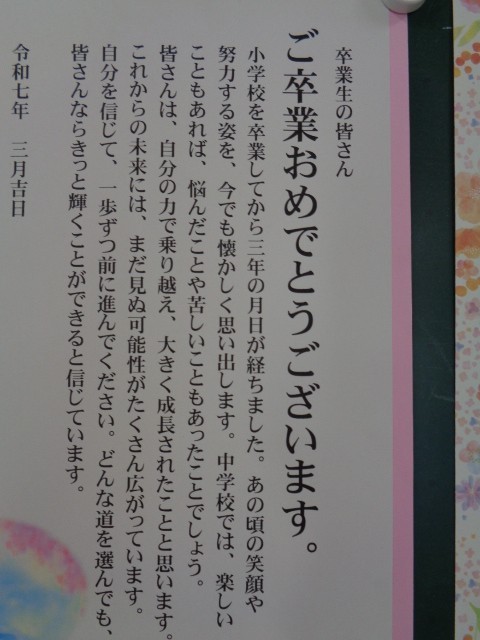 卒業生の皆さん
ご卒業おめでとうございます。
小学校を卒業してから三年の月日が経ちました。あの頃の笑顔や
努力する姿を、今でも懐かしく思い出します。中学校では、楽しい
こともあれば、悩んだことや苦しいこともあったことでしょう。
皆さんは、自分の力で乗り越え、大きく成長されたことと思います。
これからの未来には、まだ見ぬ可能性がたくさん広がっています。
自分を信じて、一歩ずつ前に進んでください。どんな道を選んでも、
皆さんならきっと輝くことができると信じています。
令和七年　三月吉日